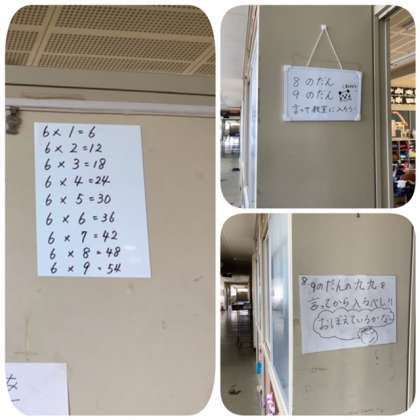 6×1=6
6×2=12
6×3=18
6×4=24
6×5=30
6×6=36
6×7=42
6×8=48
6×9=54
8のだん
9のだん
言って教室に入ろう!
8
9のだんの九九を
言ってから入るべし!!
おぼえているかな